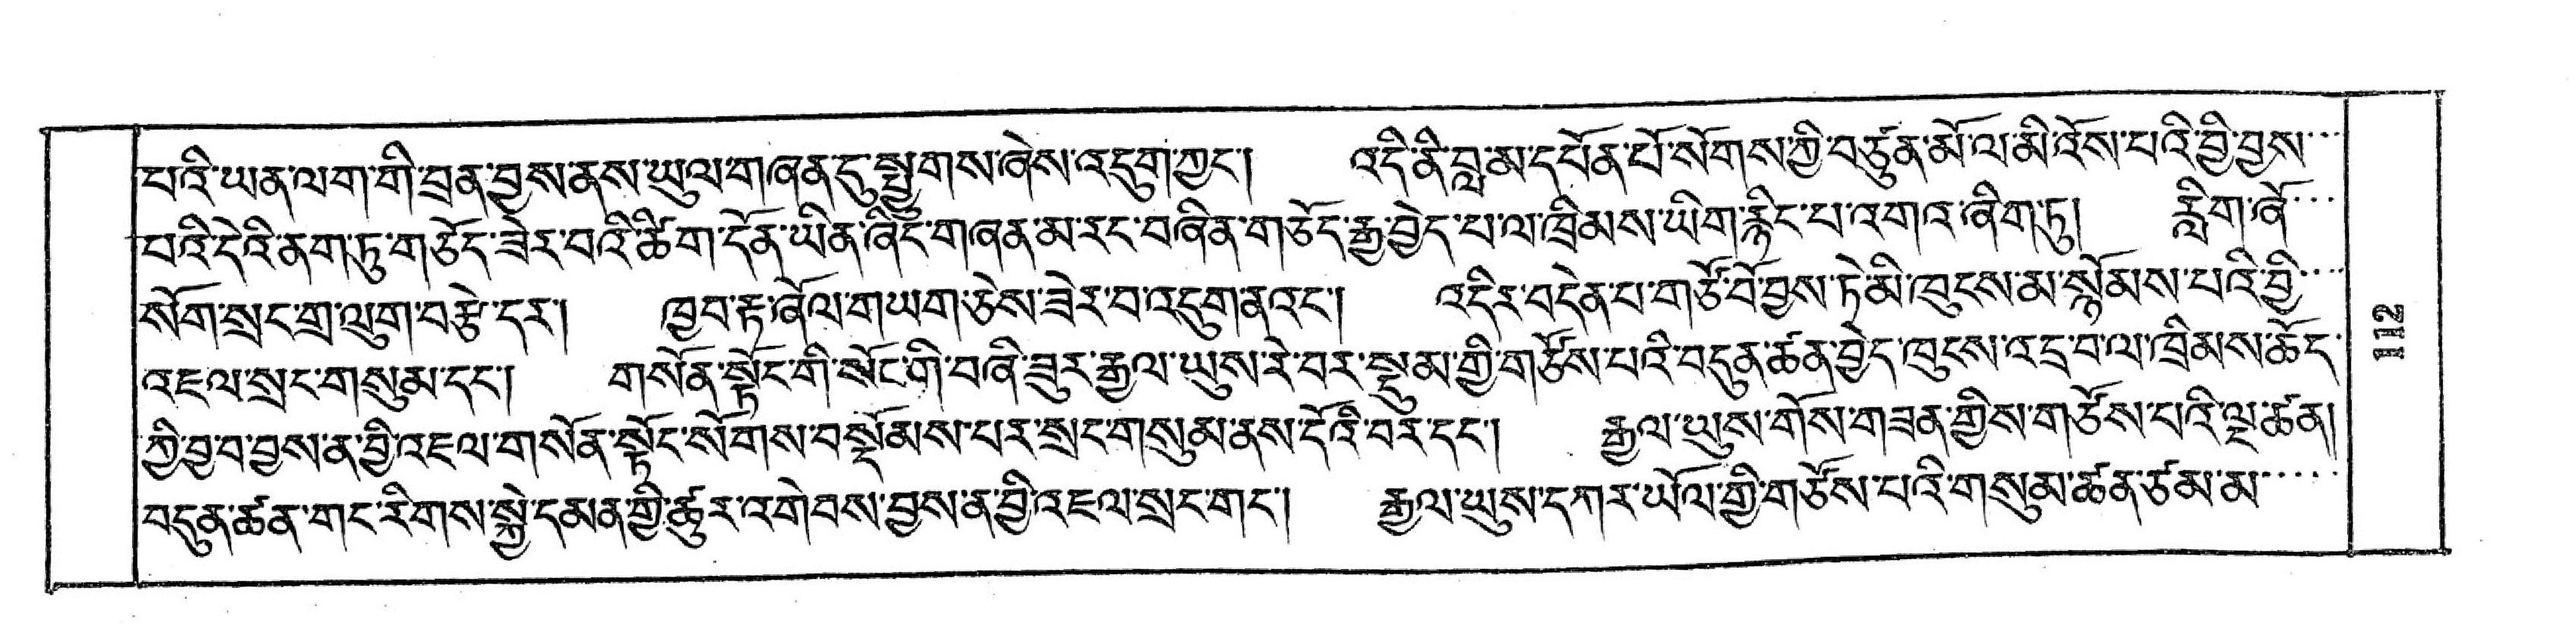 པའི་ཡན་ལག་གི་བྲན་བྱས་ནས་ཡུལ་གཞན་དུ་སྤྱུགས་ཞེས་འདུག་ཀྱང་།    འདི་ནི་བླ་མ་དཔོན་པོ་སོགས་ཀྱི་བཙུན་མོ་ལ་མི་འོས་པའི་བྱི་བྱས་་་
པའི་དེའི་ནག་ཏུ་གཅོད་ཟེར་བའི་ཚིག་དོན་ཡིན་ཞིང་གཞན་མ་རང་བཞིན་གཅོད་རྒྱ་བྱེད་པ་ལ་ཁྲིམས་ཡིག་རྙིང་པ་འགའ་ཞིག་ཏུ།    རླིག་ཞོ་་་་
སོག་སྲང་གྲ་ལུག་བརྩེ་དར།    ཁྱབ་རྟ་ཞོལ་གཡག་ཅེས་ཟེར་བ་འདུག་ནའང་།    འདིར་བདེན་པ་གཙོ་བོ་བྱས་ཏེ་མི་ཁུངས་མ་སྙོམས་པའི་བྱི་་་་
འཇལ་སྲང་གསུམ་དང་།    གསོན་སྟོང་གི་སོང་གི་བཞི་ཟུར་རྒྱལ་ཡུས་རེ་བར་སྡུམ་གྱི་གཙོས་པའི་བདུན་ཚན་བྱེད་ཁུངས་འདྲ་བ་ལ་ཁྲིམས་ཆོད་
ཀྱི་བྱ་བ་བྱས་ན་བྱི་འཇལ་གསོན་སྟོང་སོགས་བསྡོམས་པར་སྲང་གསུམ་ནས་དོའི་བར་དང་།    རྒྱལ་ཡུས་གོས་གཟན་གྱིས་གཙོས་པའི་ལྔ་ཚན།
བདུན་ཚན་གང་རིགས་སྐྱེ་དམན་གྱི་ཚུར་འགེབས་བྱས་ན་བྱི་འཇལ་སྲང་གང་།    རྒྱལ་ཡུས་དཀར་ཡོལ་གྱི་གཙོས་པའི་གསུམ་ཚན་ཙམ་མ་་་་་
112